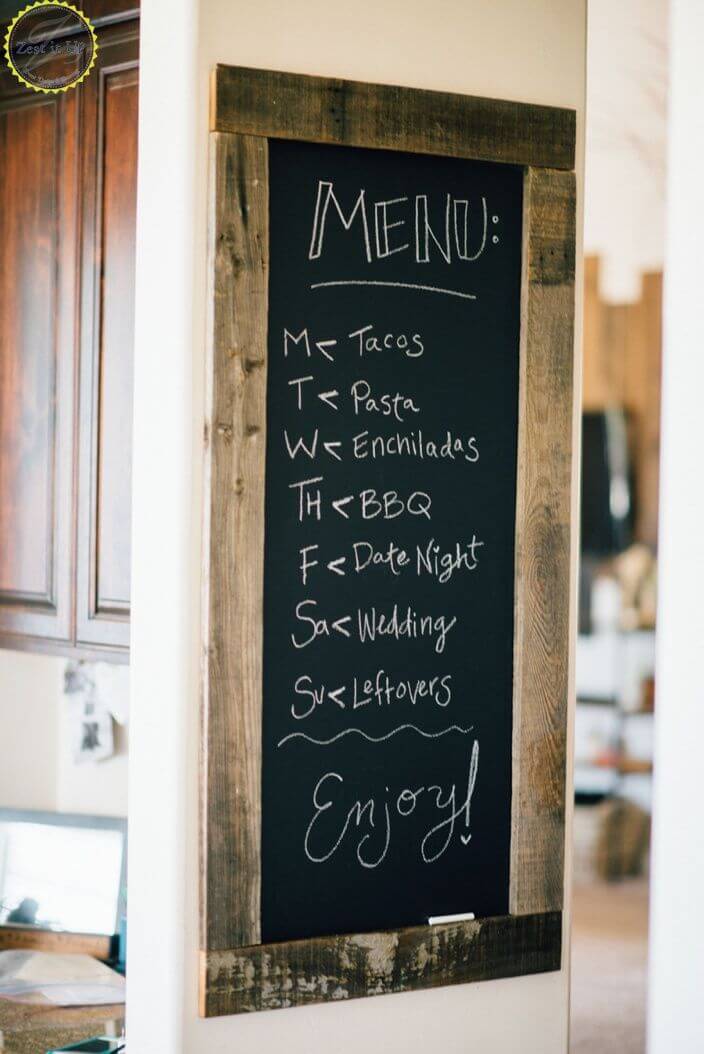 Zest it Up
MENU:
M < Tacos
T < Pasta
W < Enchiladas
TH < BBQ
F < Date Night
Sa < Wedding
Su < Leftovers
Enjoy!